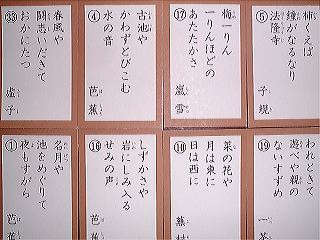 ⑤
柿くえば
鐘がなるなり
法隆寺
子規
⑰
梅一りん
一りんほどの
あたたかさ
嵐雪
④
古池や
かわずとびこむ
水の音
芭蕉
㉝
春風や
闘志いだきて
おかにたつ
虚子
⑲
われときて
遊べや親の
ないすずめ
一茶
⑩
菜の花や
月は東に
日は西に
蕪村
⑯
しずかさや
岩にしみ入る
せみの声
芭蕉
①
名月や
池をめぐりて
夜もすがら
芭蕉